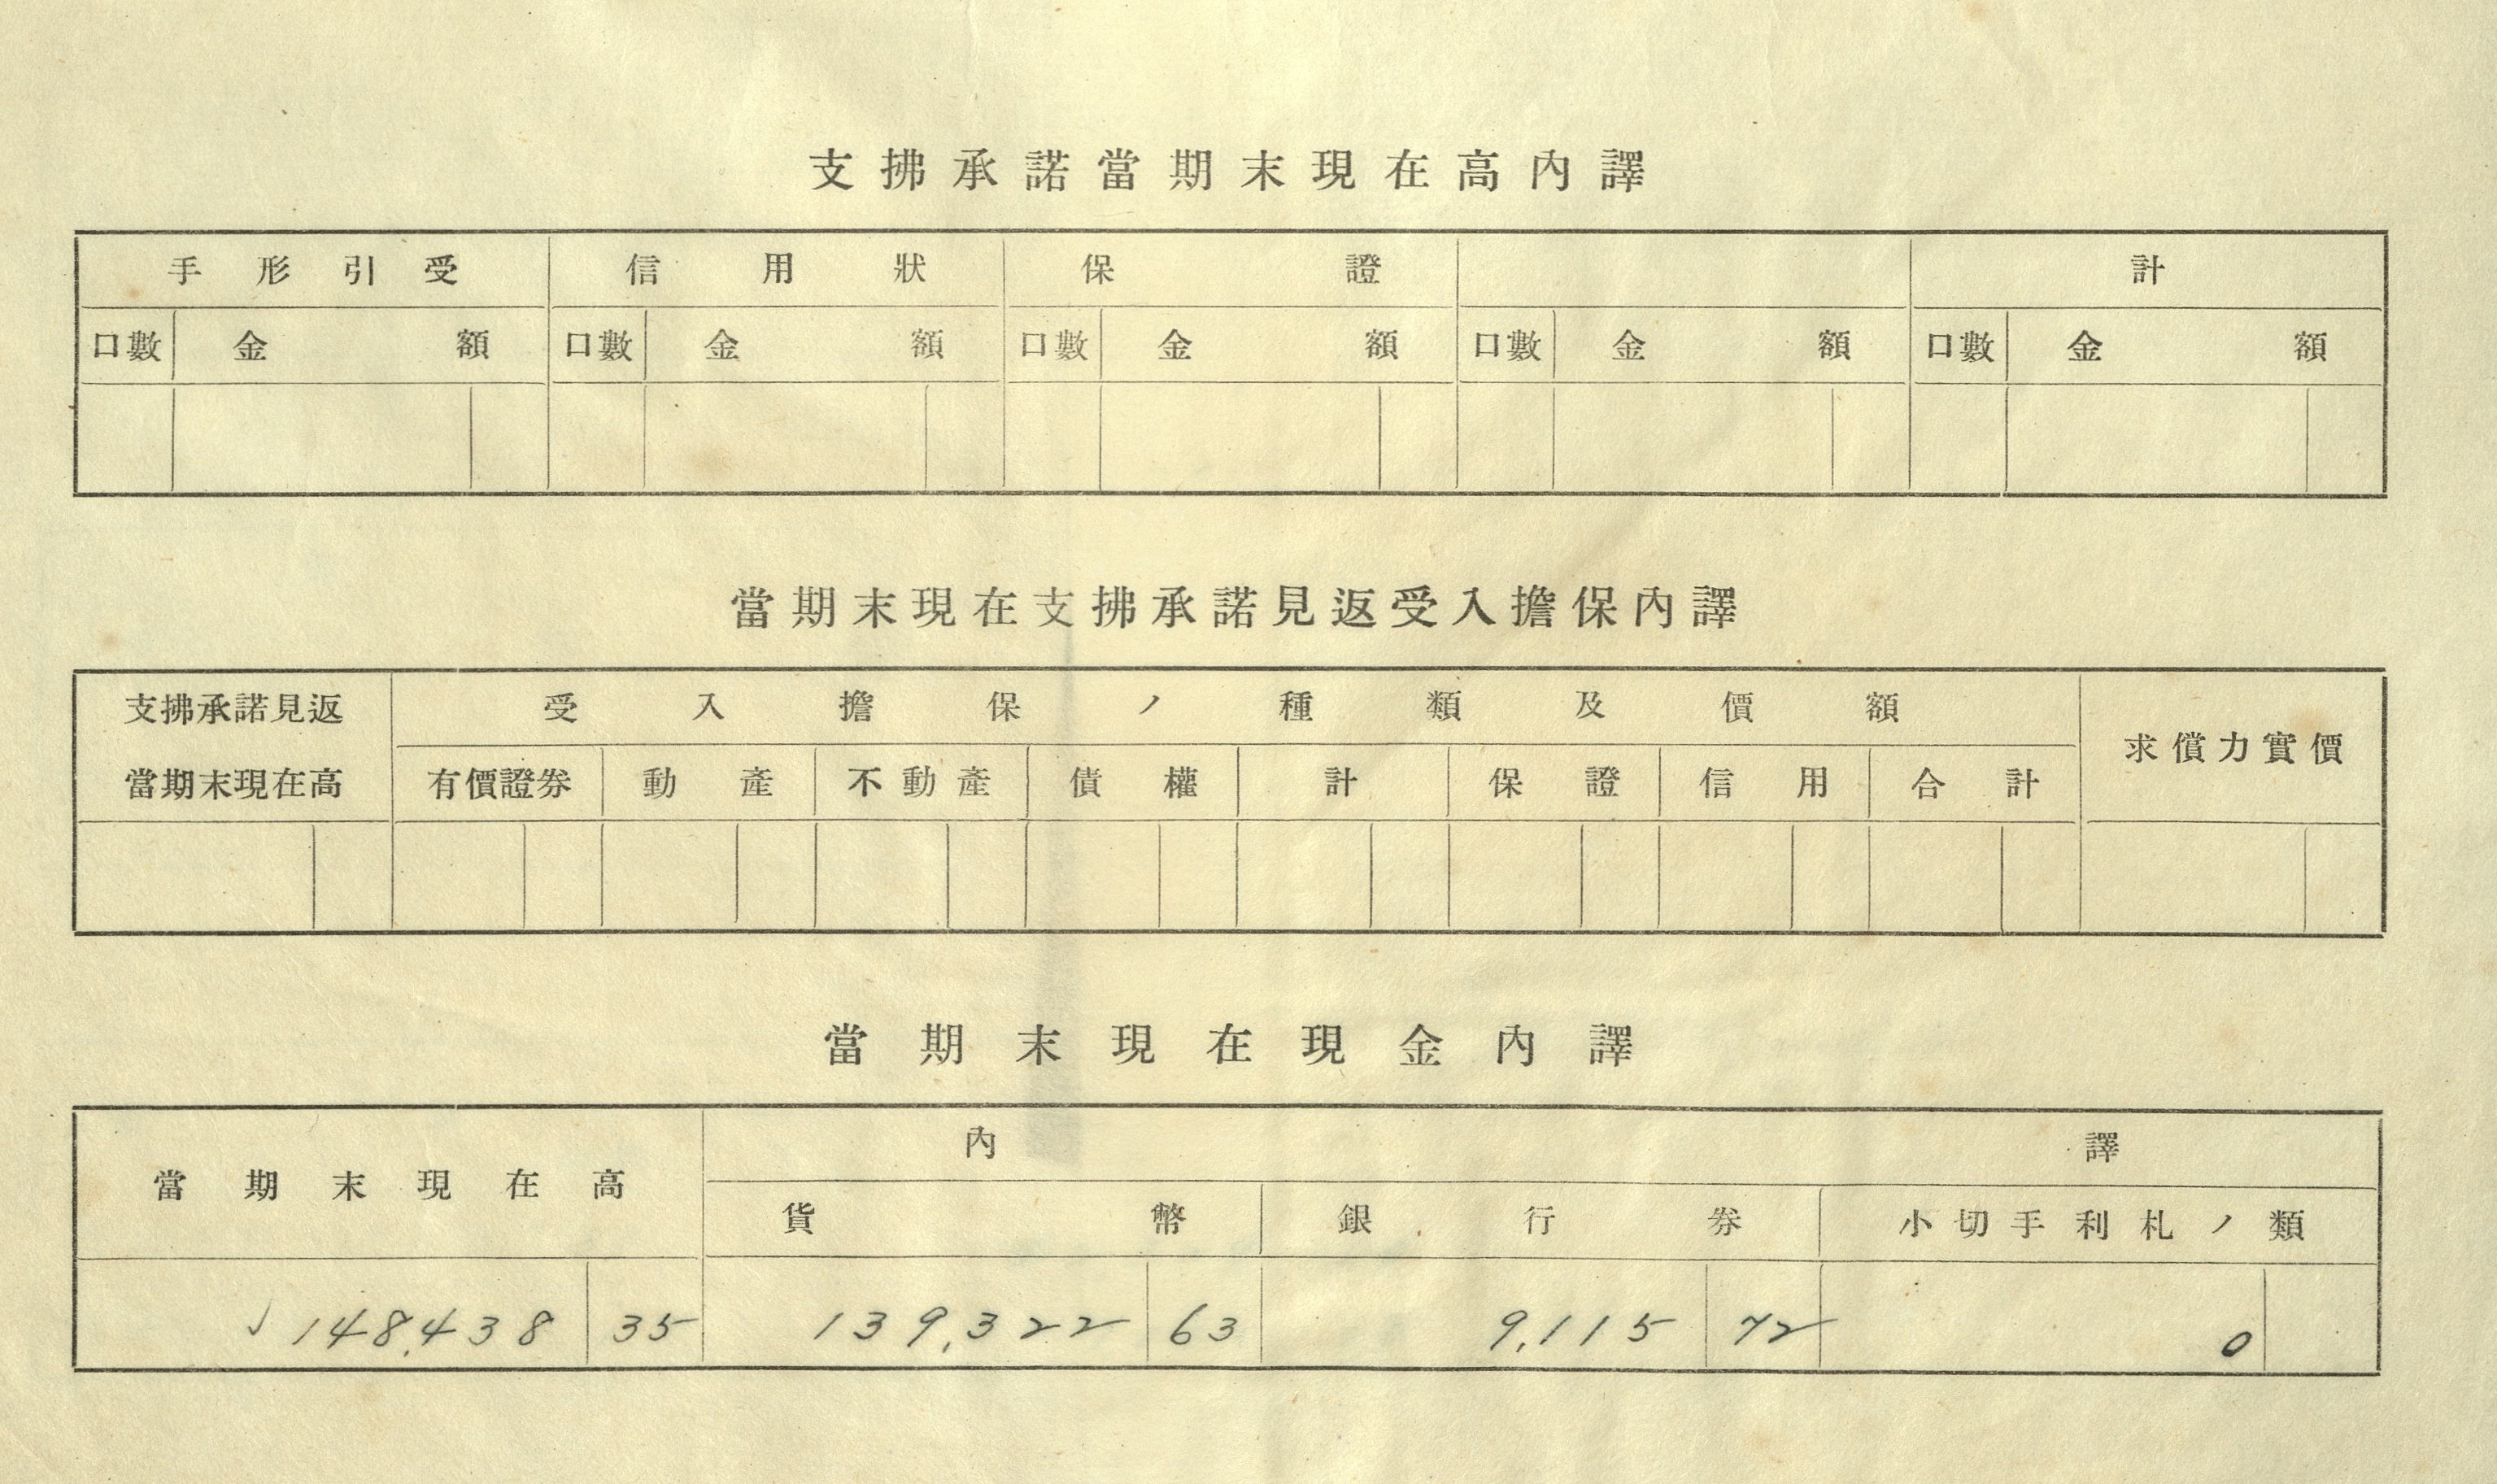 支拂承諾當期末現在高內譯
手形引受 信用狀 保證 計
口數 金額 口數 金額 口數 金額 口數 金額 口數 金額
當期末現在支拂承諾見返受入擔保內譯
支拂承諾見返 受入擔保ノ種類及價額
求償力實價
當期末現在高 有價證券 動產 不動產 債權 計 保證 信用 合計
當期末現在現金內譯
內譯
當期末現在高
貨幣 銀行券 小切手利札ノ類
✓148,438 35 139,322 63 9,115 72 0